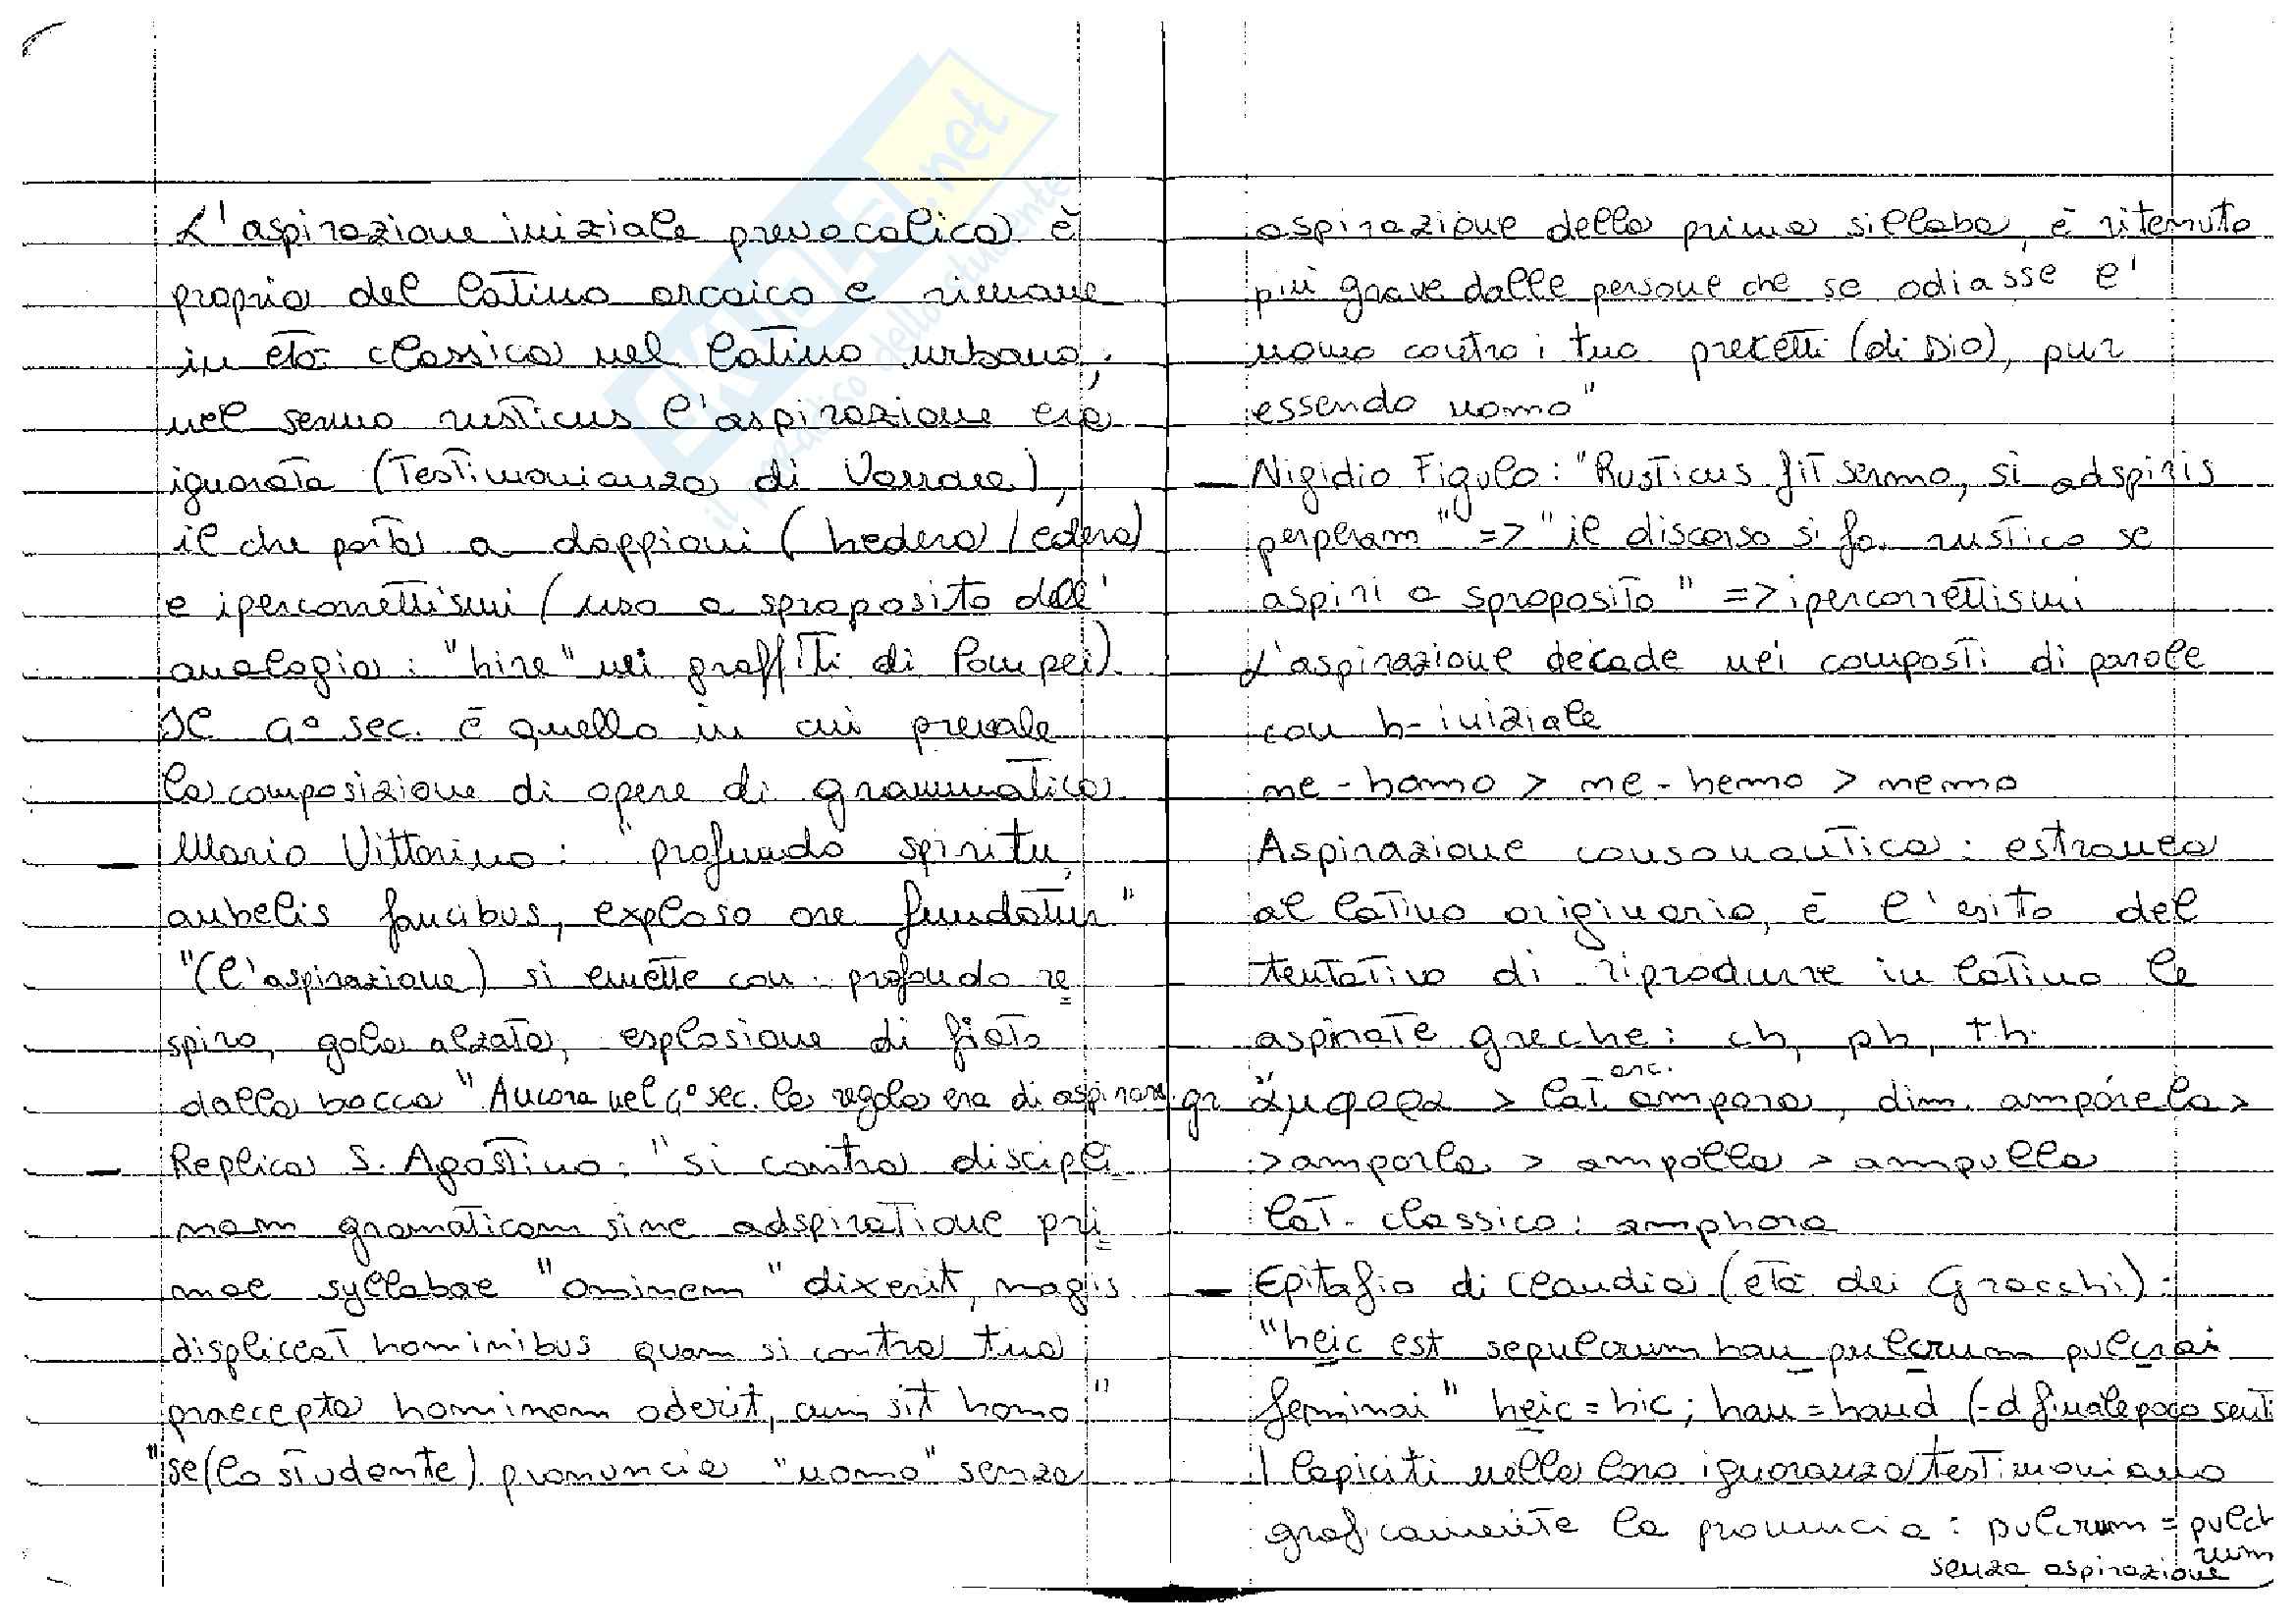 L'aspirazione iniziale prevocalica è
propria del latino arcaico e rimane
in età classica nel latino urbano;
nel sermo rusticus l'aspirazione era
ignorata (Testimonianza di Varrone),
il che porta a doppioni (hedera / edera)
e ipercorrettismi (uso a sproposito dell'
analogia: "hire" nei graffiti di Pompei).
Il 4° sec. è quello in cui prevale
la composizione di opere di grammatica
- Mario Vittorino: "profundo spiritu,
anhelis faucibus, exploso ore fundatur"
"(l'aspirazione) si emette con profondo re
spiro, gola alzata, esplosione di fiato
dalla bocca" Ancora nel 4° sec. la regola era di aspirare.
- Replica S. Agostino: "si contra discipli
nam gramaticam sine adspiratione pri
mae syllabae "ominem" dixerit, magis
displiceat hominibus quam si contra tua
praecepta hominem oderit, cum sit homo"
"se (lo studente) pronuncia "uomo" senza
aspirazione della prima sillaba, è ritenuto
più grave dalle persone che se odiasse l'
uomo contro i tuo precetti (di Dio), pur
essendo uomo"
- Nigidio Figulo: "Rusticus fit sermo, si adspiris
perperam" => "il discorso si fa rustico se
aspiri a sproposito" => ipercorrettismi
L'aspirazione decade nei composti di parole
con h- iniziale
ne - homo > ne - hemo > nemo
Aspirazione consonantica: estranea
al latino originario, è l'esito del
tentativo di riprodurre in latino le
aspirate greche: ch, ph, th.
gr ἄμφορα > lat. arc. ampora, dim. ampórela >
> amporla > ampolla > ampulla
lat. classico: amphora
- Epitafio di Claudia (età dei Gracchi):
"heic est sepulcrum hau pulcrum pulcrai
feminai" heic = hic; hau = haud (-d finale poco senti
I lapiciti nella loro ignoranza testimoniano
graficamente la pronuncia: pulcrum = pulch
rum
senza aspirazione
il paradiso dello studente
SKUOLA.net